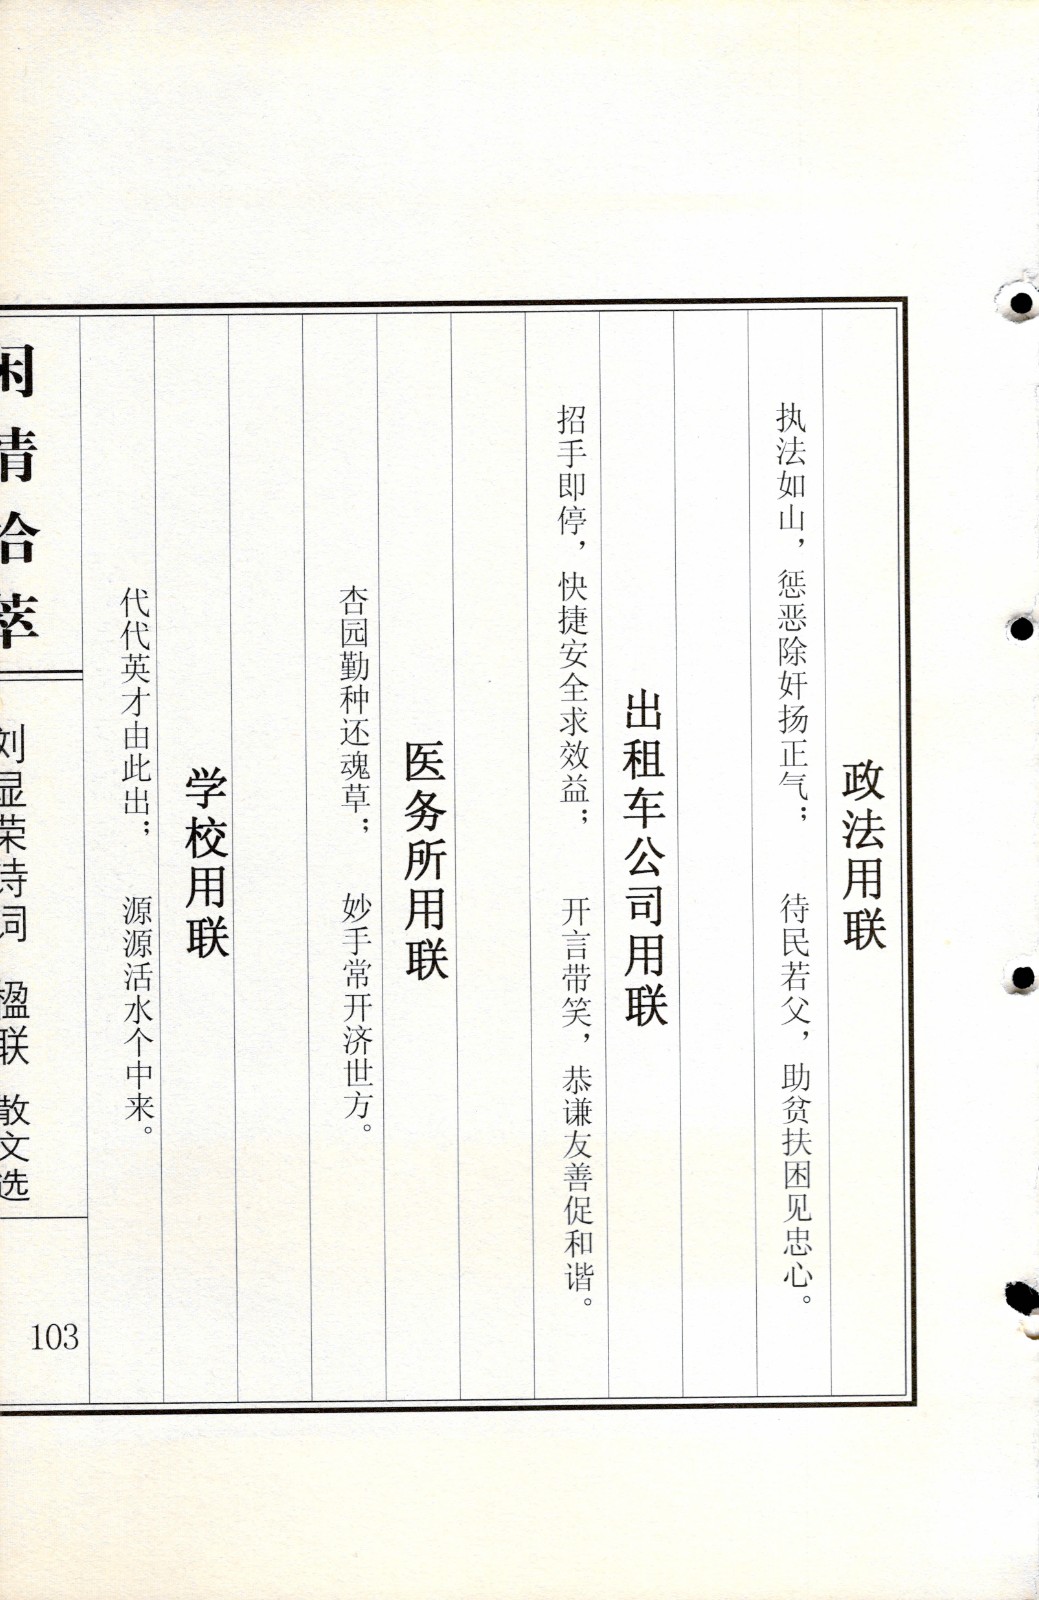 政法用联
执法如山，惩恶除奸扬正气；　待民若父，助贫扶困见忠心。
出租车公司用联
招手即停，快捷安全求效益；　开言带笑，恭谦友善促和谐。
医务所用联
杏园勤种还魂草；　妙手常开济世方。
学校用联
代代英才由此出；　源源活水个中来。
闲情拾萃
刘显荣诗词　楹联　散文选
103